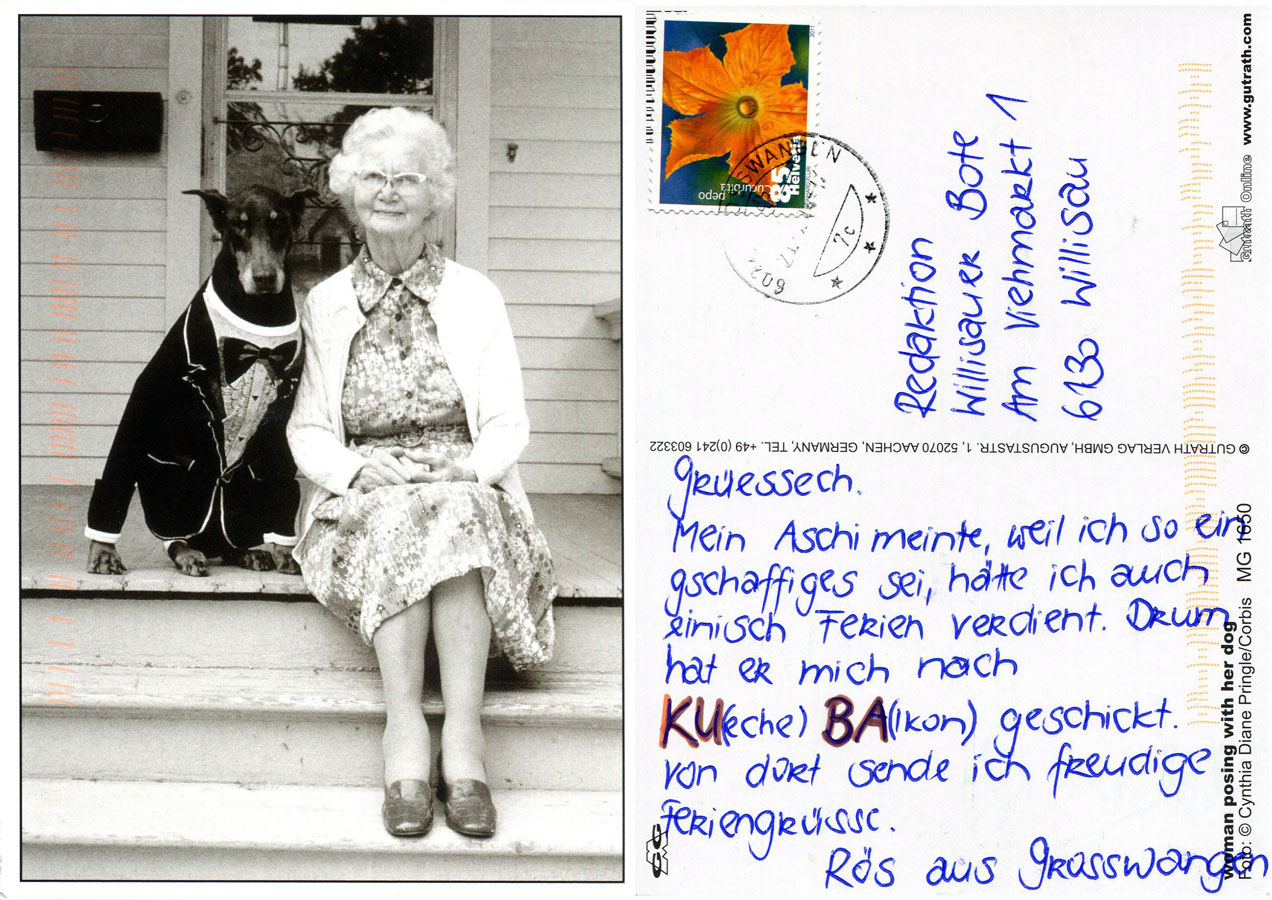 2011
85
Helvetia
Cucurbita
pepo
SWANGEN
602
7c
Redaktion
Willisauer Bote
Am Viehmarkt 1
6130 Willisau
© GUTRATH VERLAG GMBH, AUGUSTASTR. 1, 52070 AACHEN, GERMANY, TEL. +49 (0)241 603322
Grüessech.
Mein Aschi meinte, weil ich so ein
gschaffiges sei, hätte ich auch
einisch Ferien verdient. Drum
hat er mich nach
KU(eche) BA(lkon) geschickt.
von dort sende ich freudige
Feriengrüsse.
Rös aus Grosswangen
Gutrath Online www.gutrath.com
woman posing with her dog
Foto: © Cynthia Diane Pringle/Corbis MG 1650